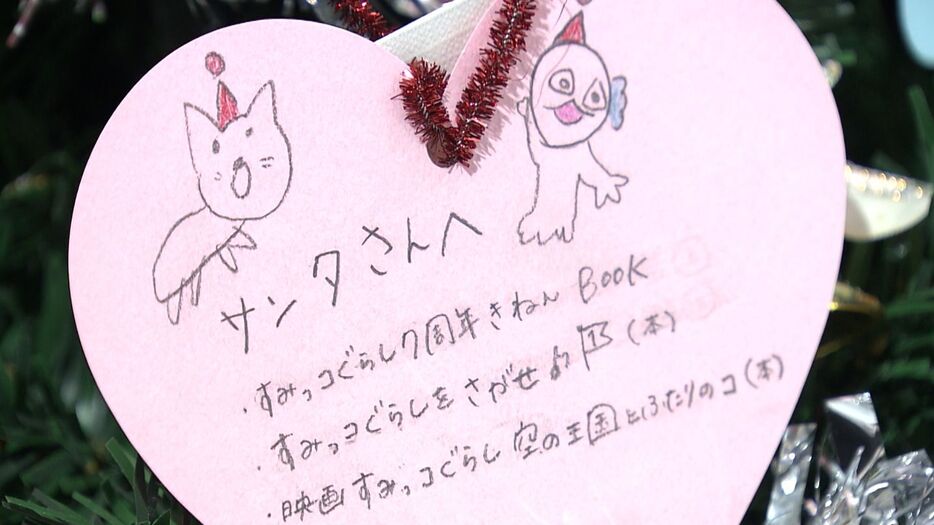 サンタさんへ
・すみっコぐらし7周年きねん BOOK
・すみっコぐらしをさがせ (本)
・映画すみっコぐらし 空の王国とふたりのコ(本)